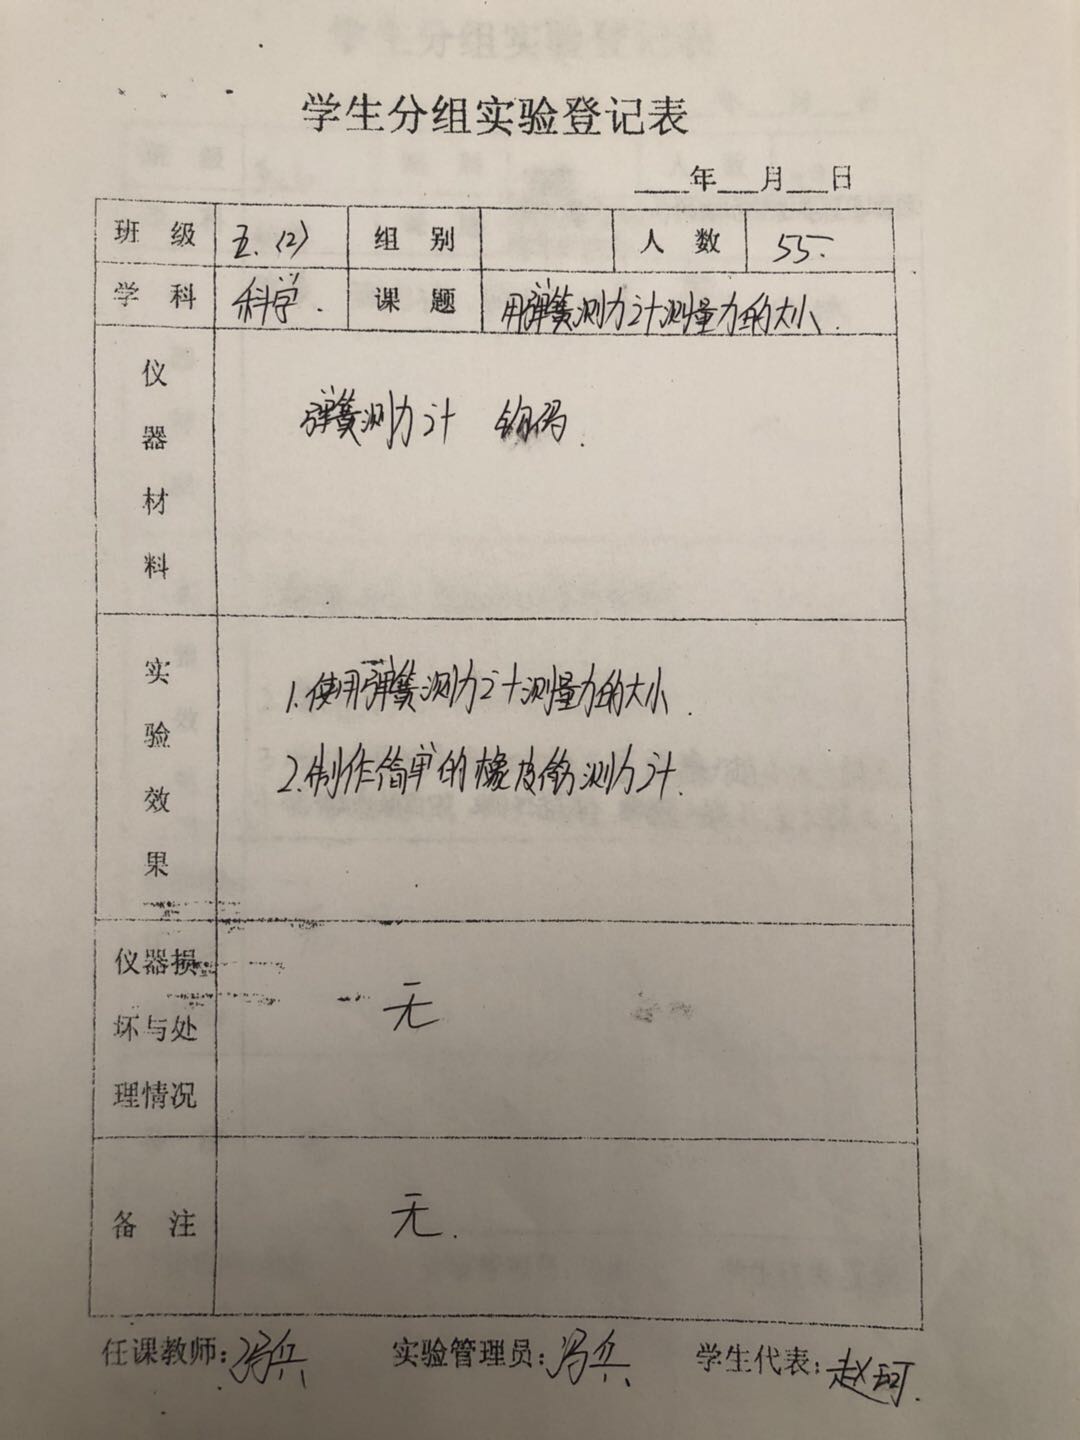 学生分组实验登记表
____年___月___日
班 级 五.(2) 组 别 人 数 55.
学 科 科学. 课 题 用弹簧测力计测量力的大小.
仪器材料 弹簧测力计 钩码.
实验效果
1.使用弹簧测力计测量力的大小.
2.制作简单的橡皮筋测力计.
仪器损
坏与处
理情况
无
备 注 无.
任课教师:冯兵 实验管理员:冯兵 学生代表:赵珂.